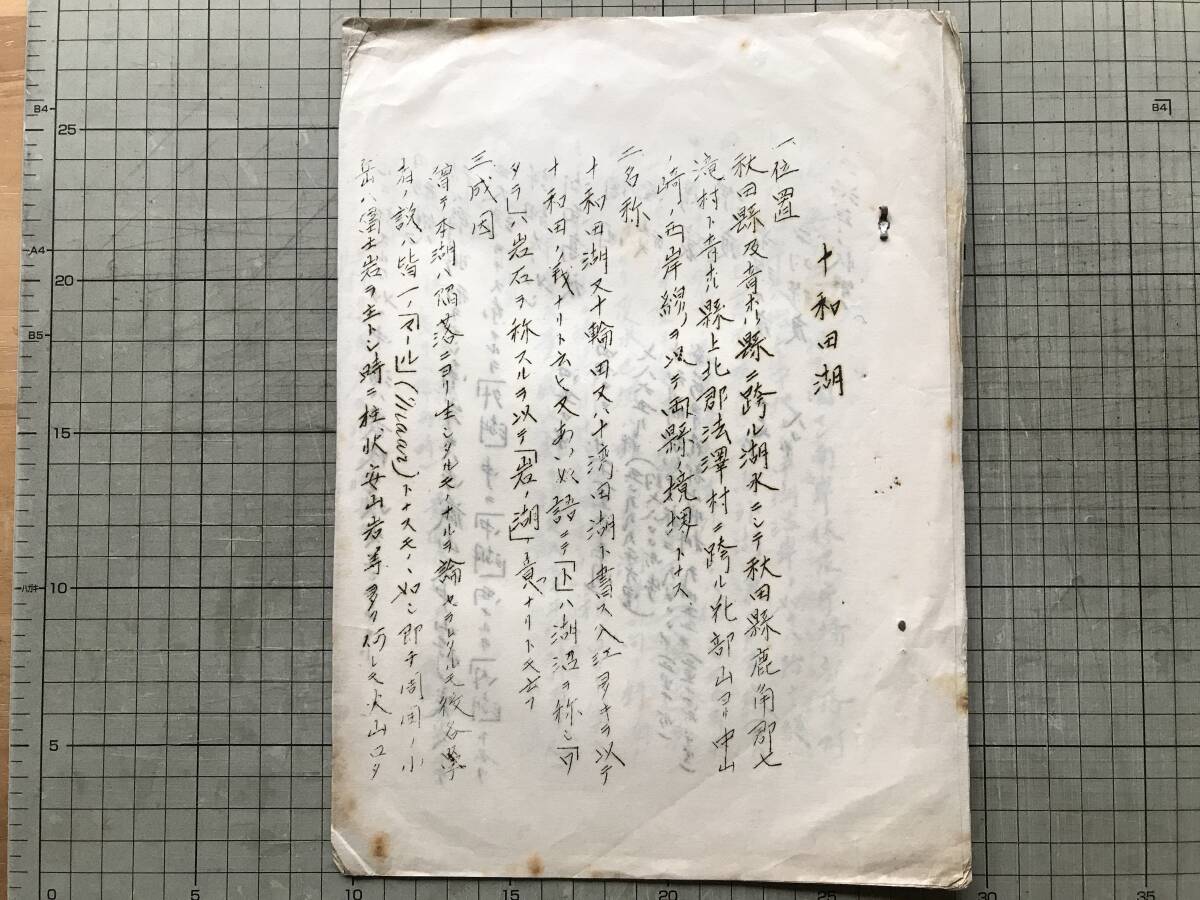 十和田湖
一位置
秋田縣及青森縣ニ跨ル湖水ニシテ秋田縣鹿角郡七
滝村ト青森縣上北郡法澤村ニ跨ル北部山ヨリ中山
崎ノ西岸線ヲ以テ両縣ノ境堺トナス
二名称
十和田湖又十輪田又ハ十湾田湖ト書ス入江多キヲ以テ
十和田ノ義ナリト云ヒ又あいぬ語ニテ「ト」ハ湖沼ヲ称シ「ワ
タラ」ハ岩石ヲ称スルヲ以テ「岩ノ湖」ノ意ナリトモ云フ
三成因
曽テ本湖ハ陥落ニヨリ生シタルモノナルヲ論セラレタルモ後各學
者ノ説ハ皆一ノ「マール」(Maar)トナスモノヽ如シ即チ周囲ノ小
岳ハ富士岩ヲ主トシ時ニ柱状安山岩等多ク何レモ火山口タ
B4
25
A4
20
B5
15
ハガキ
10
5
0
5
10
15
20
25
30
35
B4